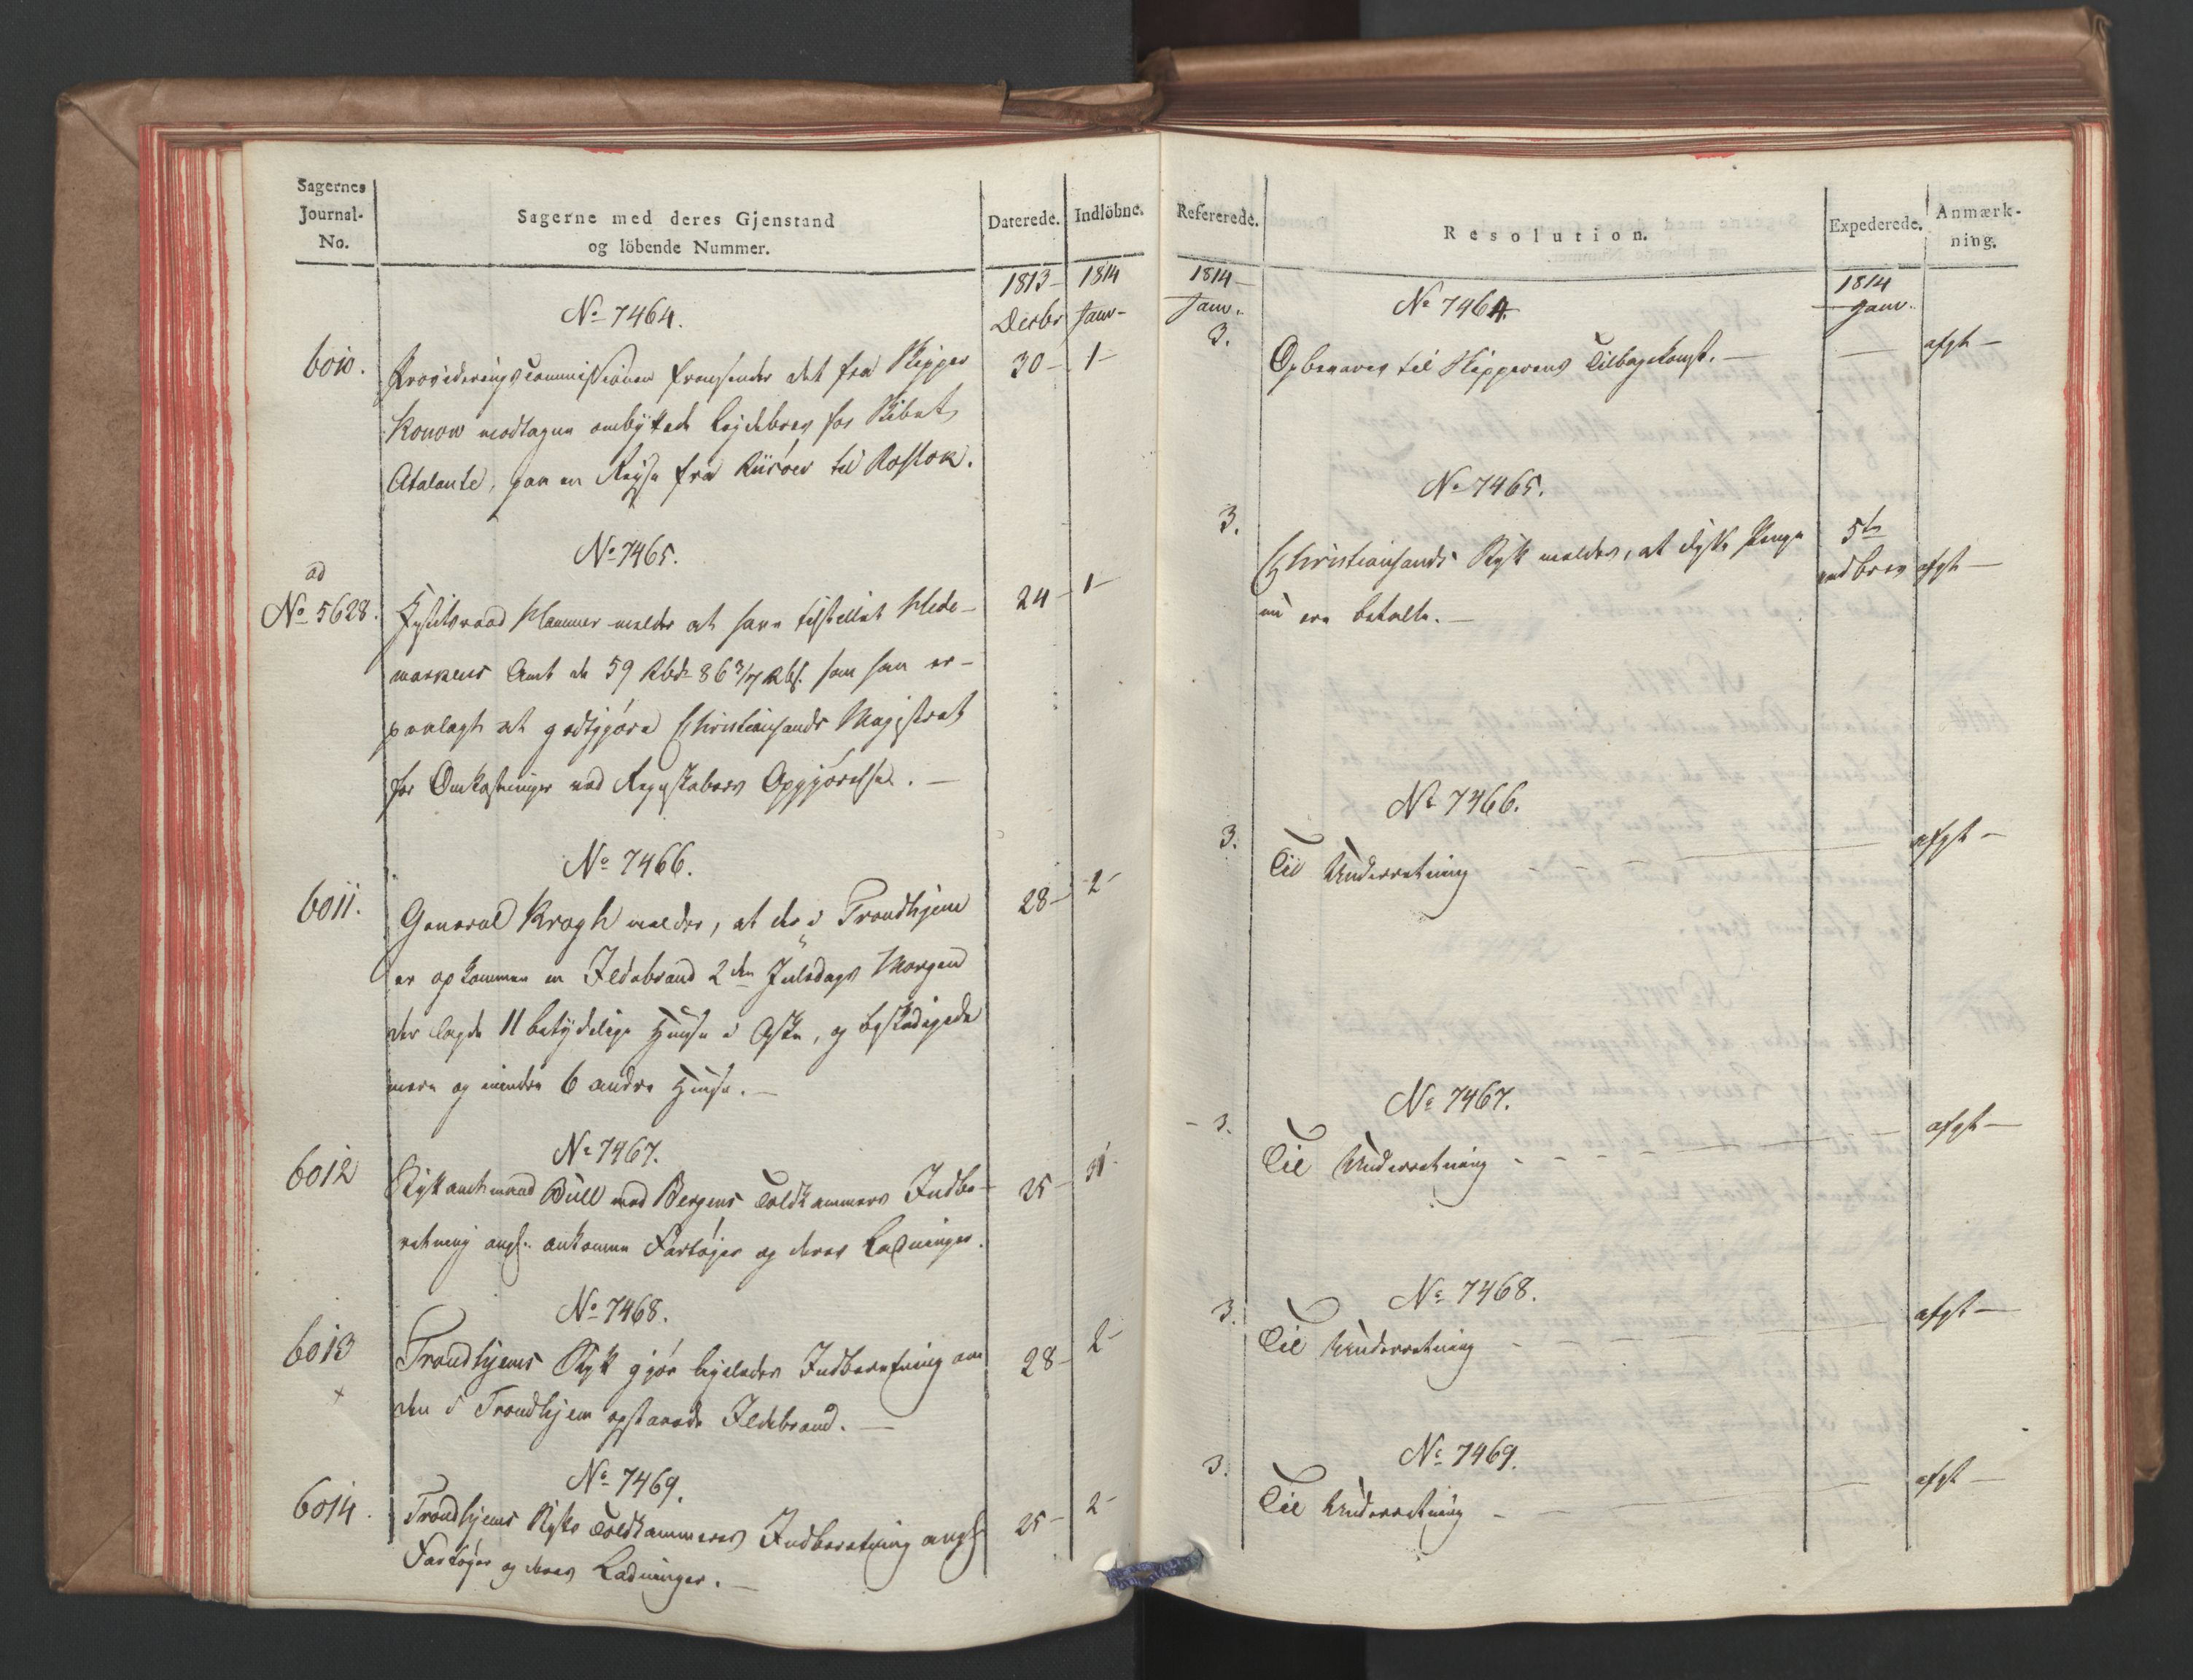 Sagernes
Journal-
No.
Sagerne med deres Gjenstand
og löbende Nummer.
Daterede.
Indlöbne.
1813
1814
Decbr
Janv
No 7464.
6010.
Provideringscommissionen fremsender det fra Skipper
30 - 1 -
Konow modtagne ombyttede Lejdebrev for Skibet
Atalante, paa en Rejse fra Riisöer til Rostok.
No 7465.
ad
No 5628.
Justitsraad Hammer melder at have tilstillet Hede-
24 - 1 -
markens Amt de 59 Rbd 86 3/7 Rbs. som han er
paalagt at godtgjöre Christiansands Magistrat
for Omkostninger ved Regnskabers Opgjörelse. -
No 7466.
6011.
General Krogh melder, at der i Trondhjem
28 - 2 -
er opkommen en Ildebrand 2den Juledags Morgen
der lagde 11 betydelige Huuse i Aske, og beskadigede
mere og mindre 6 andre Huuse. -
No 7467.
6012
Stiftamtmand Bull med Bergens Toldkammers Indbe-
25 - 31 -
retning angl. ankomne Fartöjer og deres Ladninger.
No 7468.
6013
Trondhjems Stift gjör ligeledes Indberetning om
28 - 2 -
+
den i Trondhjem opstaaede Ildebrand. -
No 7469.
6014.
Trondhjems Stifts Toldkammeres Indberetning angl
25 - 2 -
Fartöjer og deres Ladninger. -
Refererede.
Resolution.
Expederede.
Anmærk-
ning.
1814
1814
Janv.
Janv.
No 7464.
3.
Opbevares til Skipperens Tilbagekomst. -
afgt -
No 7465.
3.
Christiansands Stift meldes, at disse Penge
5te
nu ere betalte. -
ved Brev
afgt -
No 7466.
3.
Til Underretning
afgt -
No 7467.
3.
Til Underretning
afgt -
No 7468.
3.
Til Underretning
afgt -
No 7469.
3.
Til Underretning
afgt -